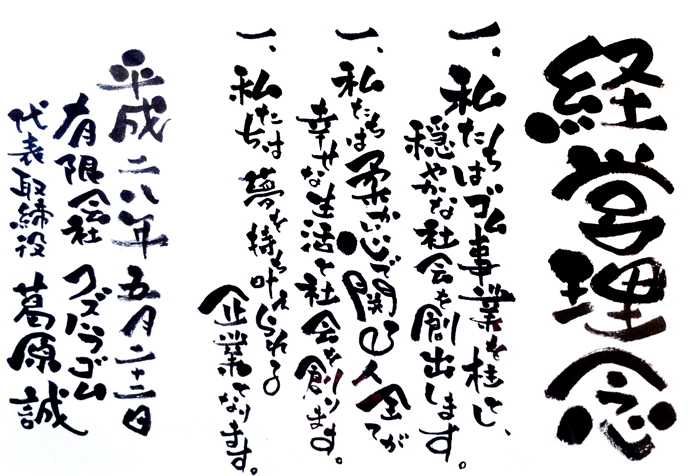 経営理念
一、私たちはゴム事業を柱とし、
穏やかな社会を創出します。
一、私たちは柔かい心で関る人全てが
幸せな生活と社会を創ります。
一、私たちは夢を持ち叶えられる
企業となります。
平成二八年五月二十三日
有限会社クズハラゴム
代表取締役葛原誠